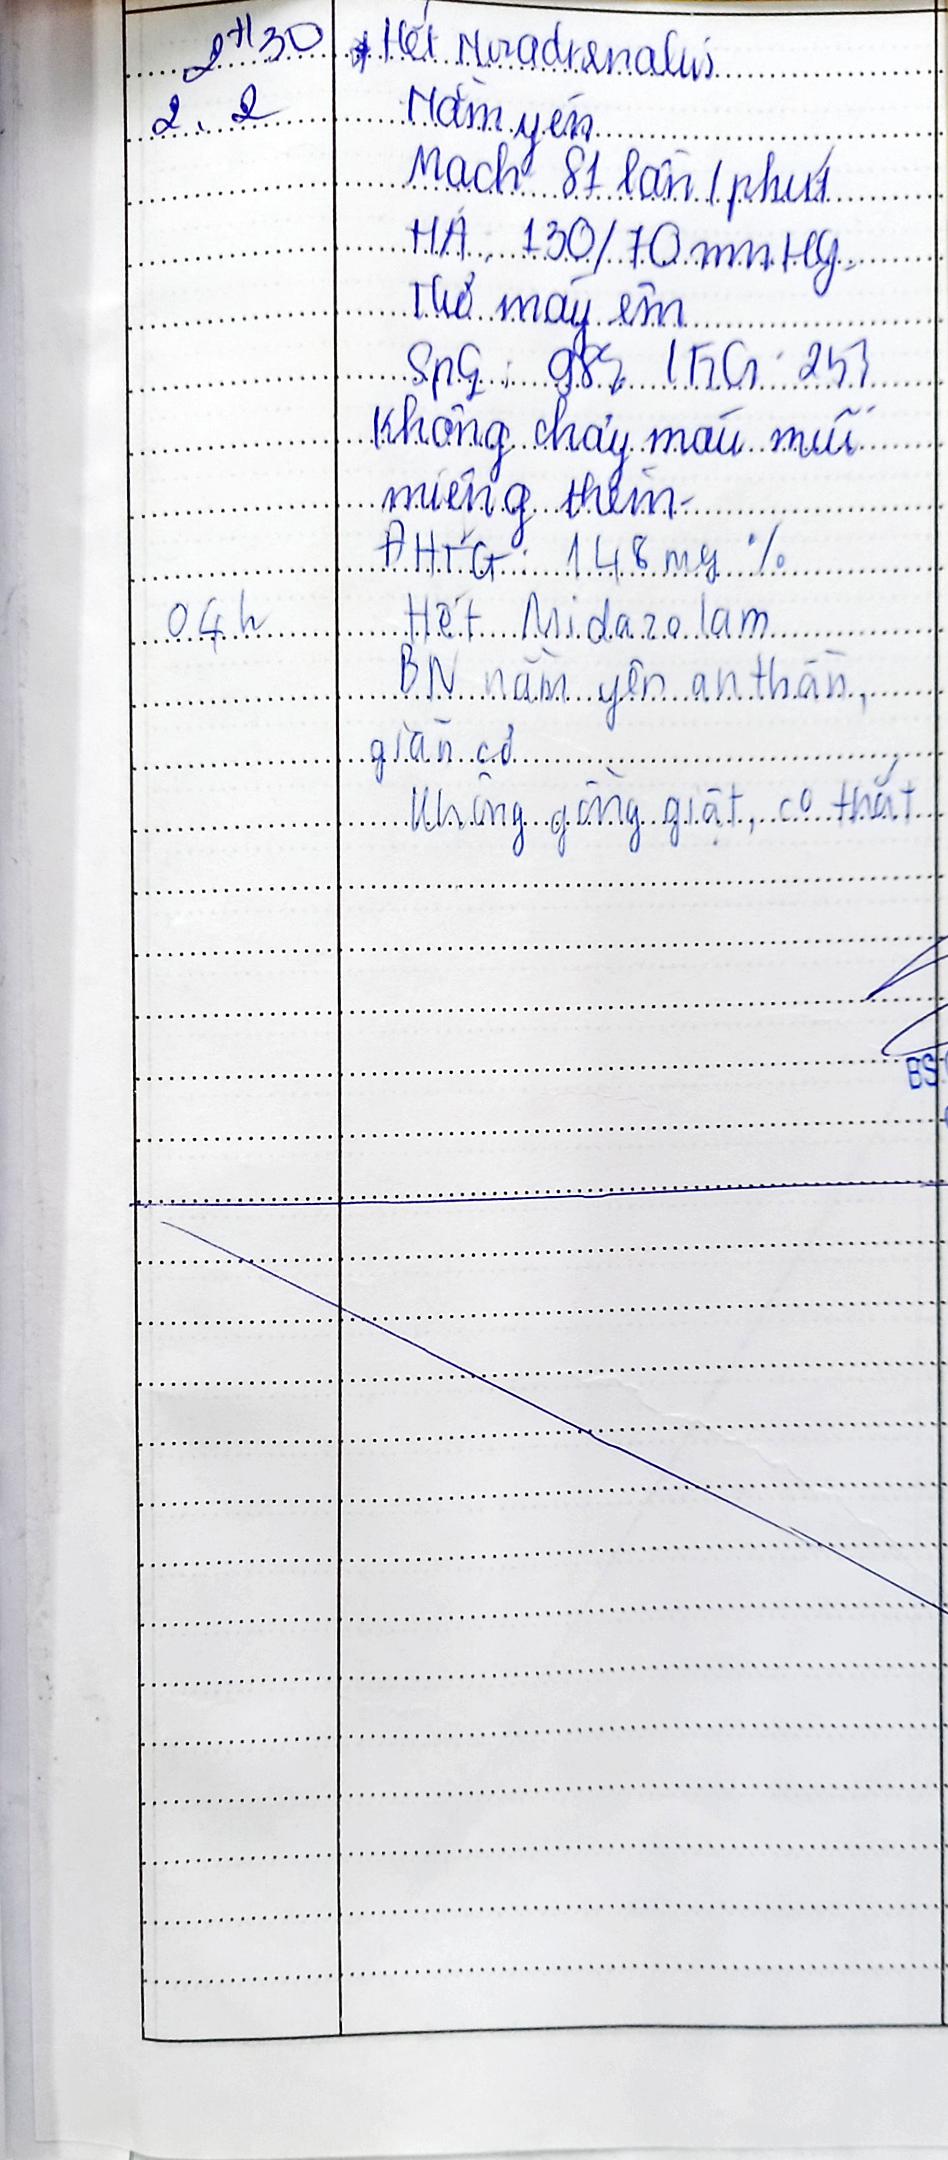 2H30 * Hết Noradrenalin
2.2 Nằm yên
Mạch 81 lần/phút
HA: 130/70 mmHg
Thở máy êm
SpO2: 98%
Không chảy máu mũi
miệng thêm.
ĐHTG: 148 mg%
04h Hết Midazolam
BN nằm yên an thần,
giãn cơ
Không gồng giật, co thắt
BS